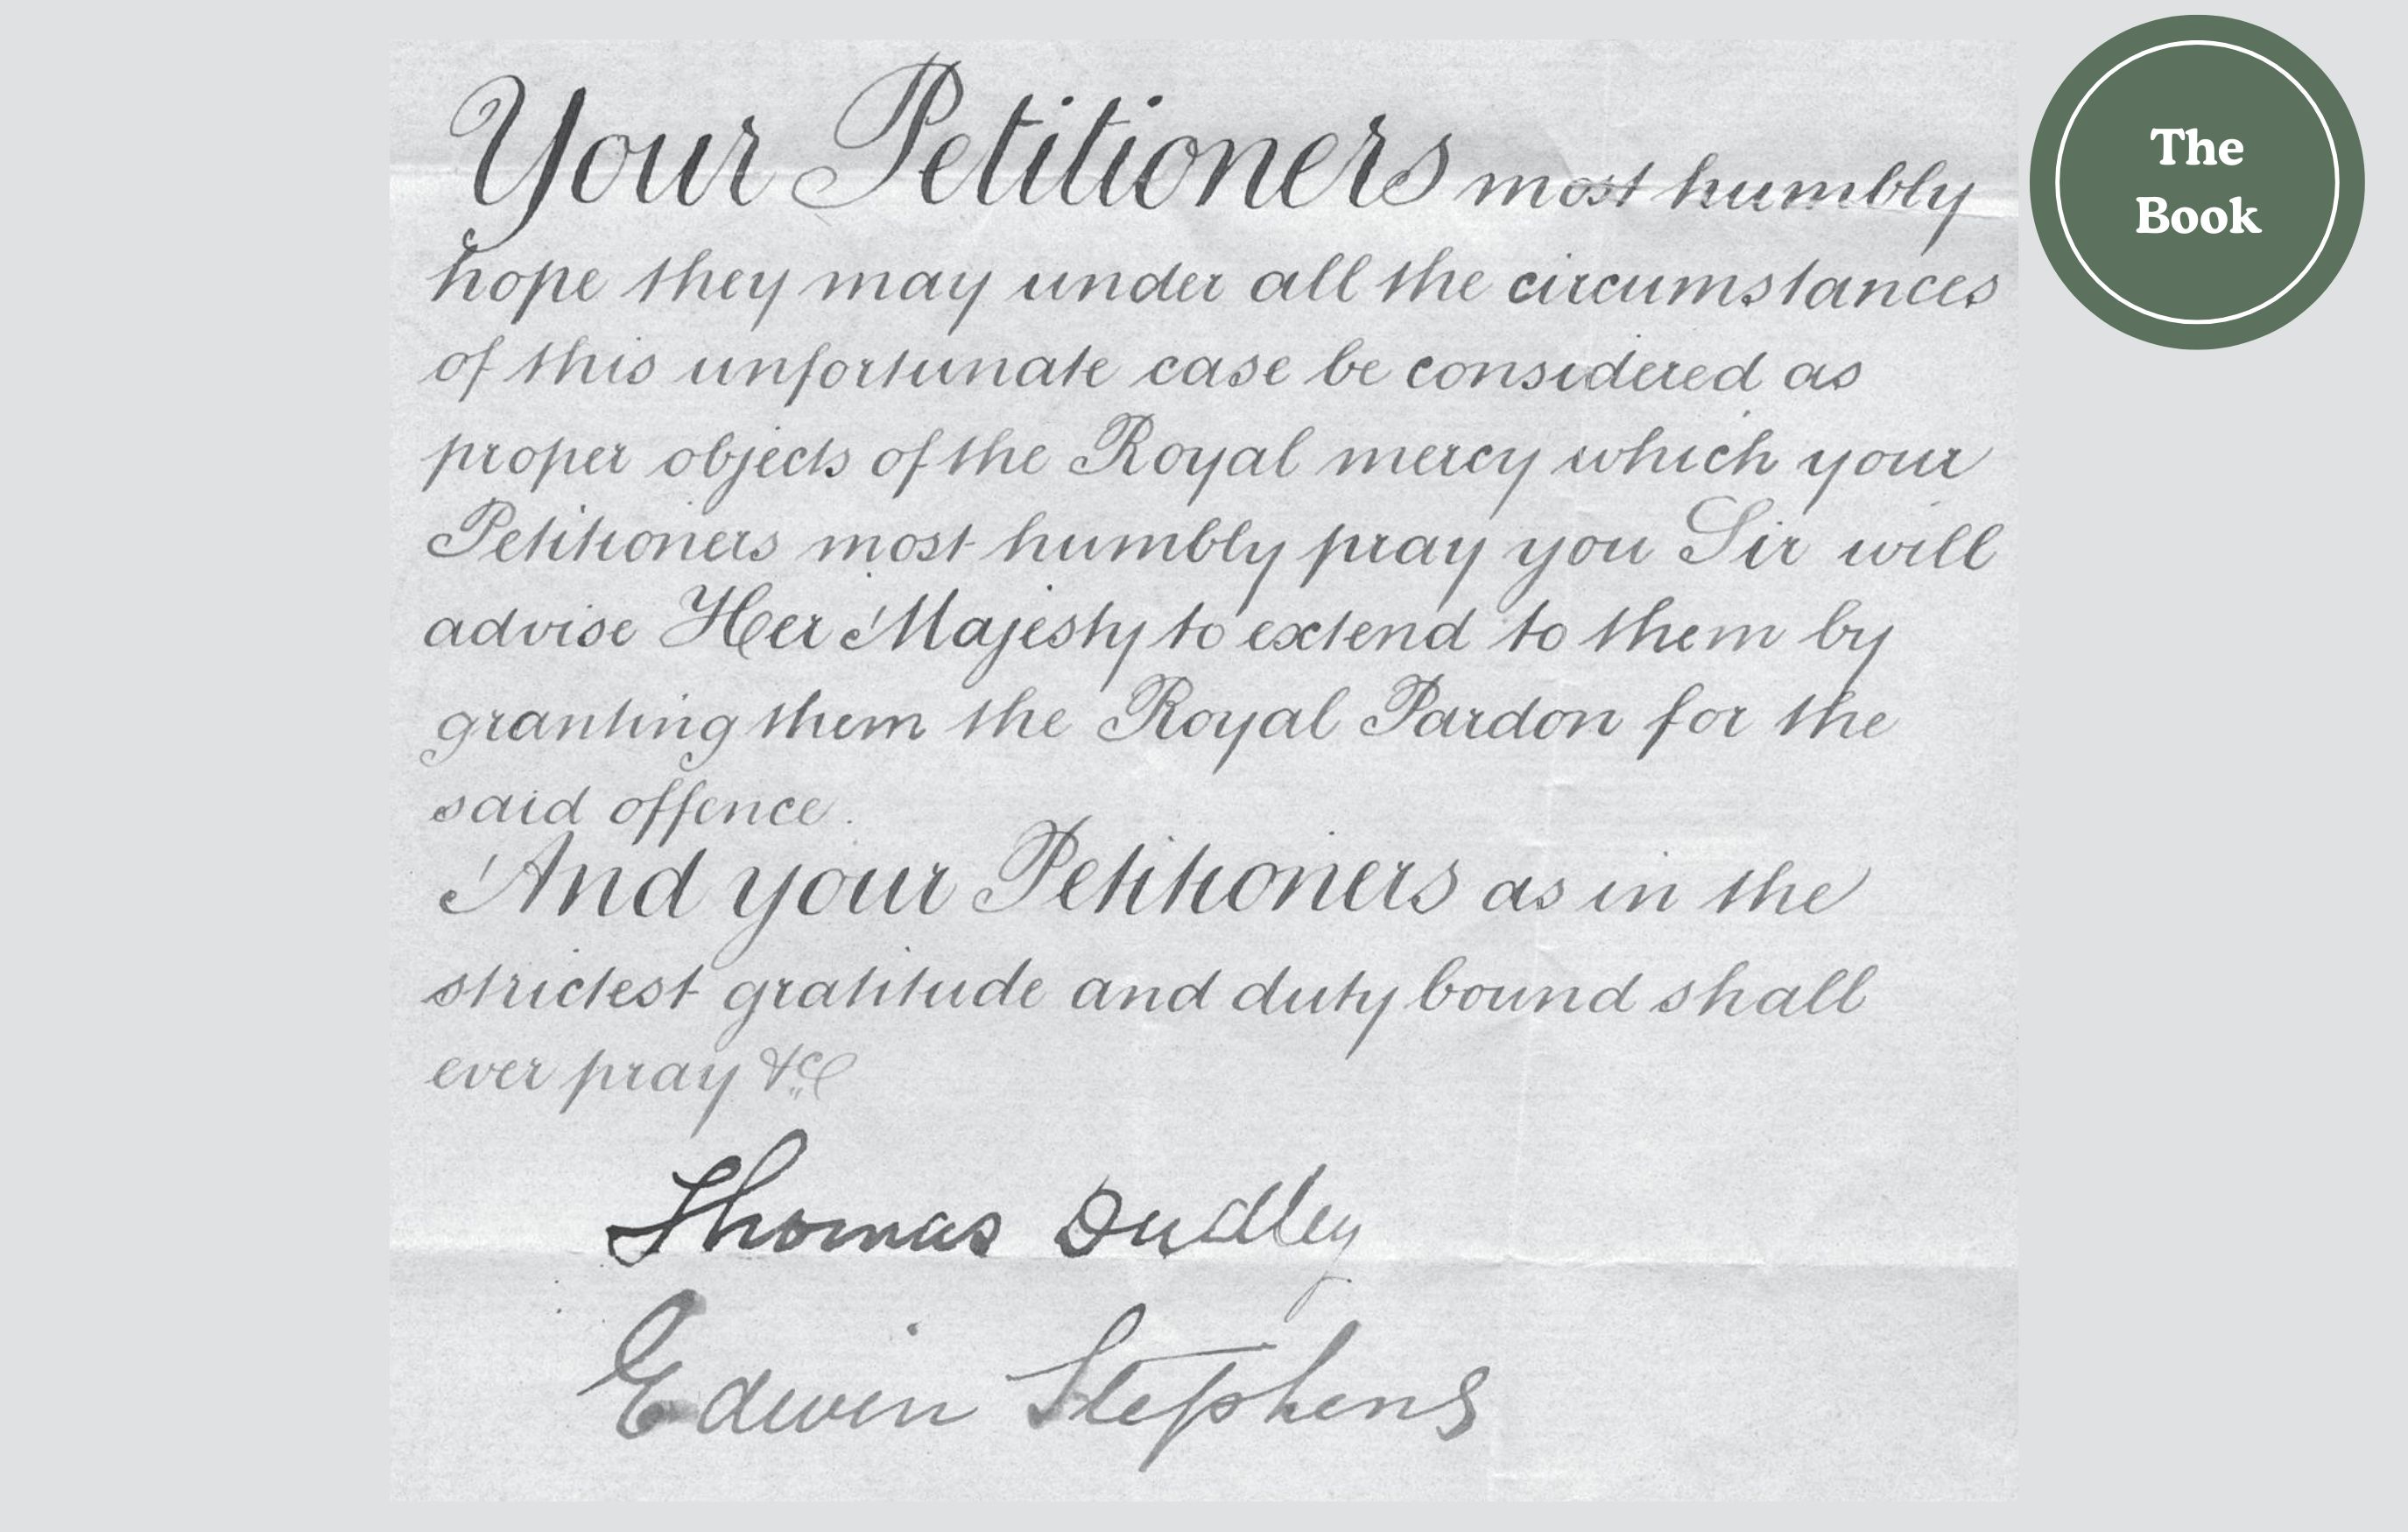 Your Petitioners most humbly
hope they may under all the circumstances
of this unfortunate case be considered as
proper objects of the Royal mercy which your
Petitioners most humbly pray you Sir will
advise Her Majesty to extend to them by
granting them the Royal Pardon for the
said offence.
And your Petitioners as in the
strictest gratitude and duty bound shall
ever pray &c
Thomas Dudley
Edwin Stephens
The
Book